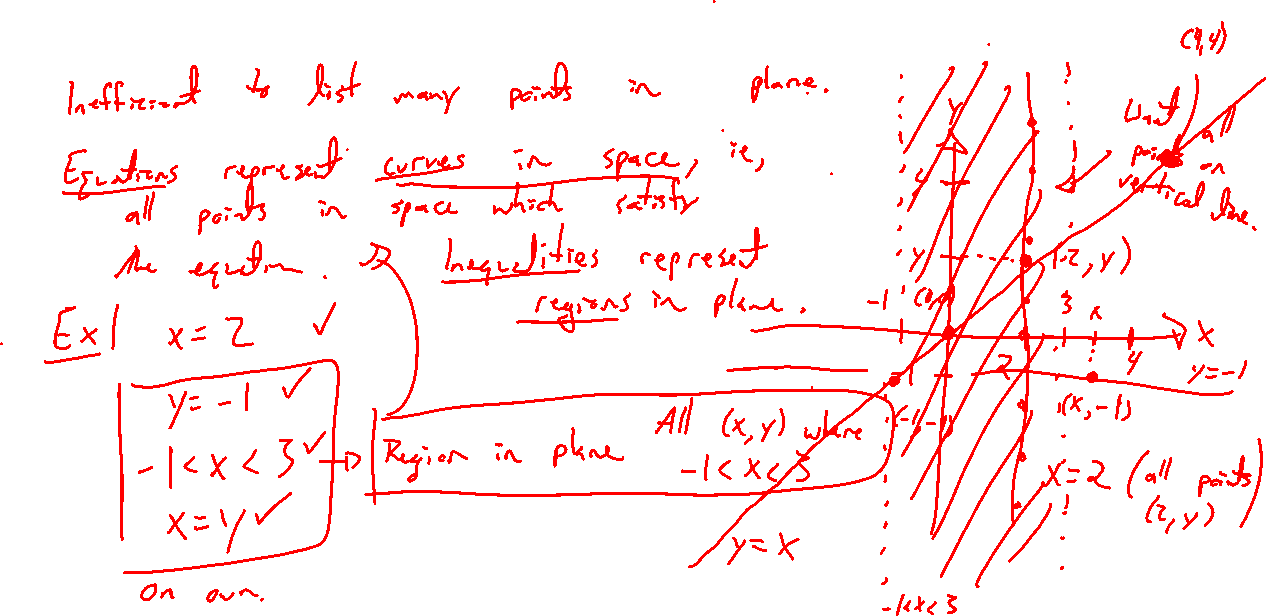 Inefficient to list many points in plane.
Equations represent curves in space, ie,
all points in space which satisfy
the equation.
Inequalities represent
regions in plane.
Ex| x = 2 ✓
y = -1 ✓
-1 < x < 3 ✓
x = y ✓
On own.
Region in plane All (x, y) where
-1 < x < 3
(4,4)
Want all
points on
vertical line.
Y
4
y
(2, y)
-1
3
x
X
2
4
y = -1
-1
(x, -1)
(-1, -1)
x = 2 (all points
(2, y))
y = x
-1 < x < 3